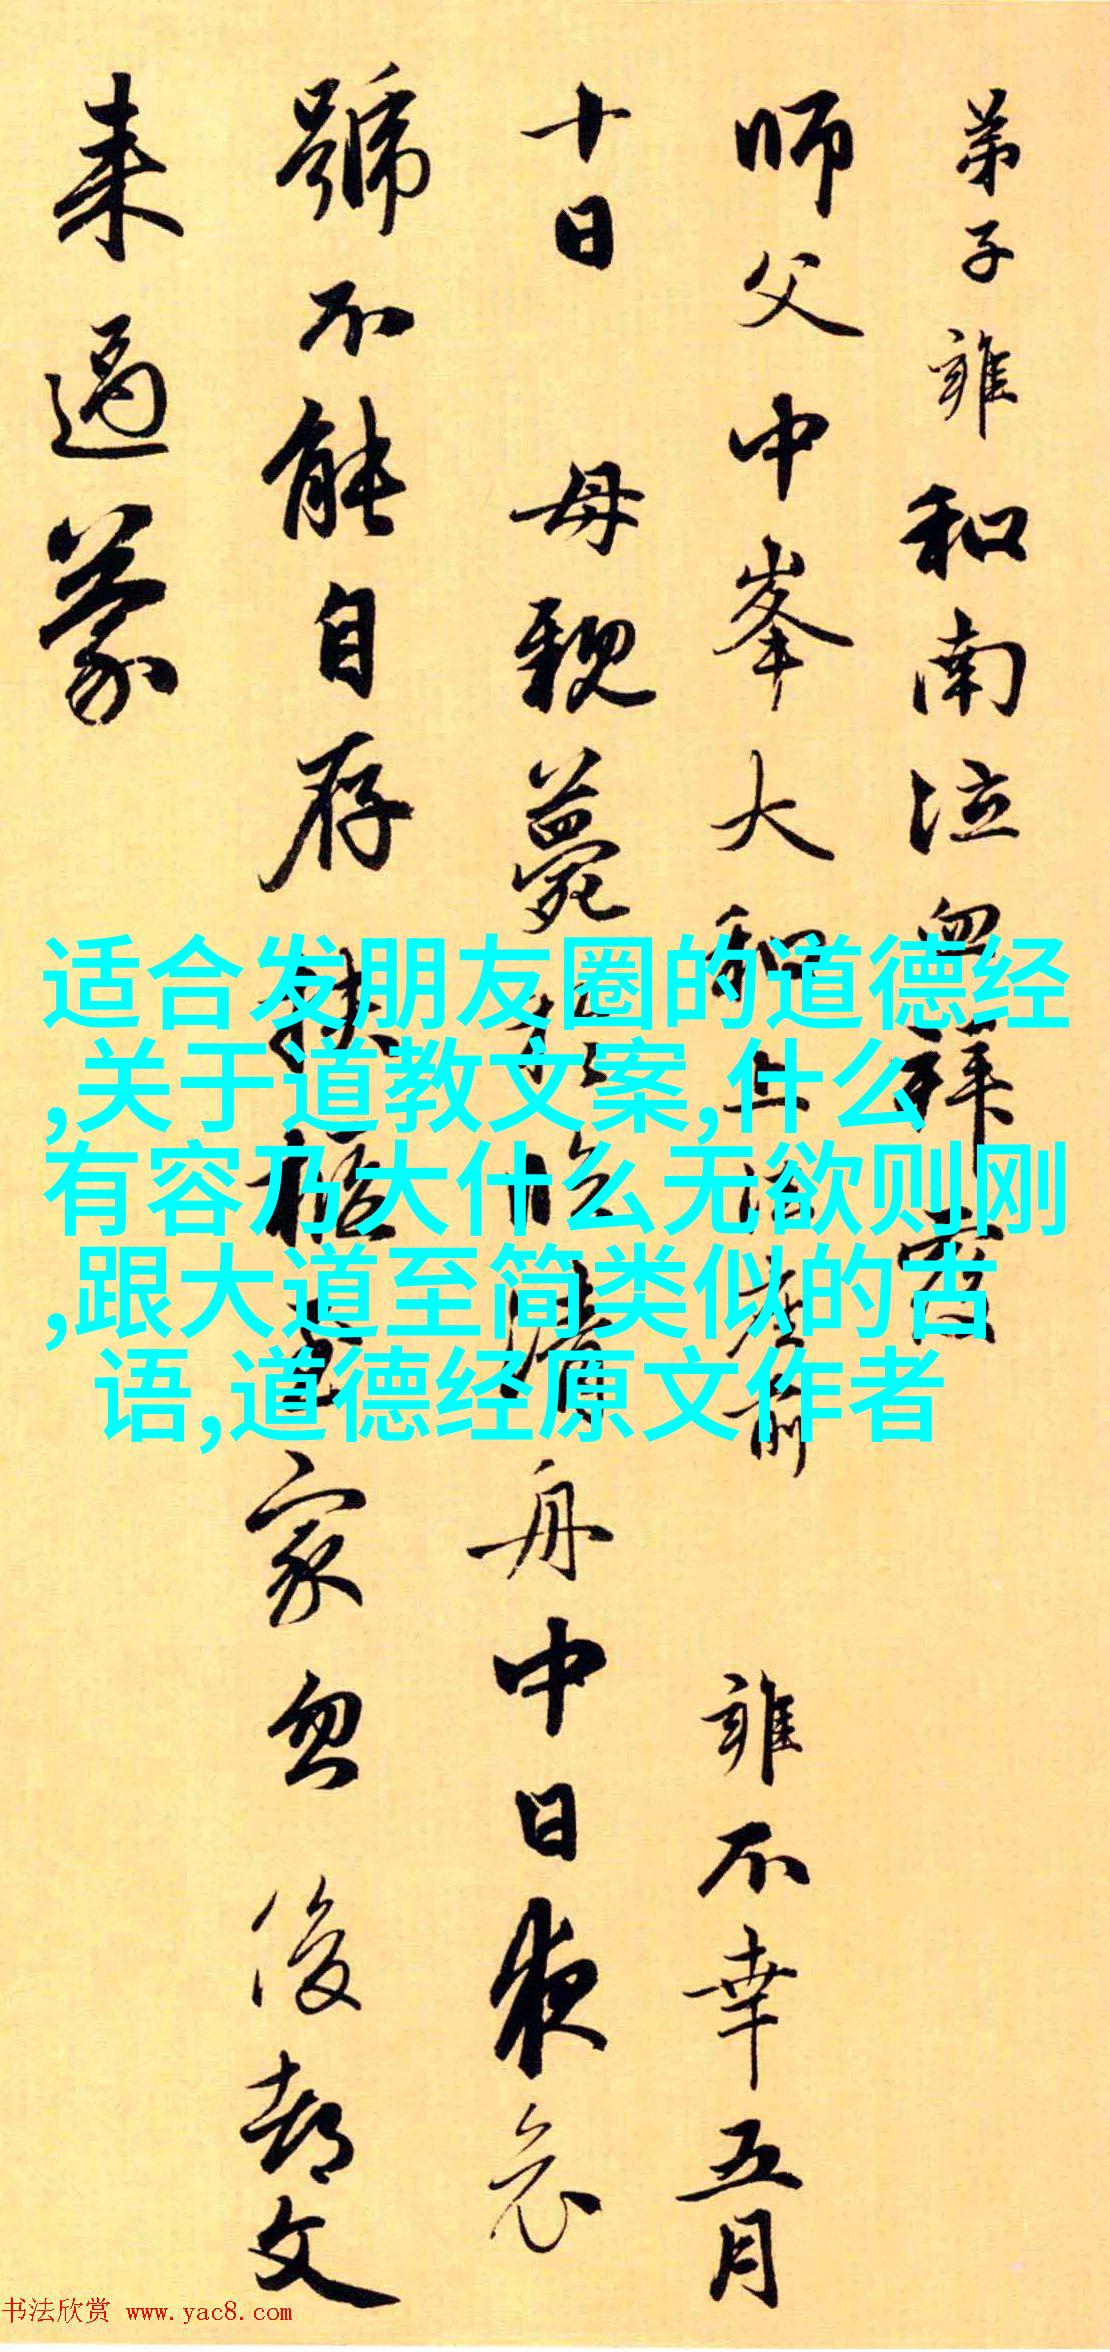 弟子雍和南泣血拜覆
師父中峯大和上法座前 雍不幸五月
十日 母親薨於臨清舟中日夜哀
號不能自存扶柩至家忽後都文
來過蒙
适合发朋友圈的道德经
,关于道教文案,什么
有容乃大什么无欲则刚
,跟大道至简类似的古
语,道德经原文作者
书法欣赏 www.yac8.com